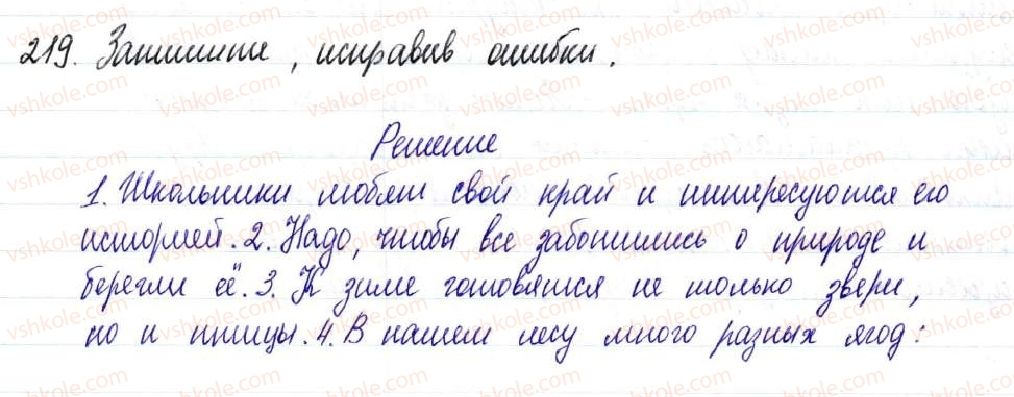 219. Запишите, исправив ошибки.
Решение
1. Школьники любят свой край и интересуются его
историей. 2. Надо, чтобы все заботились о природе и
берегли её. 3. К зиме готовятся не только звери,
но и птицы. 4. В нашем лесу много разных ягод: